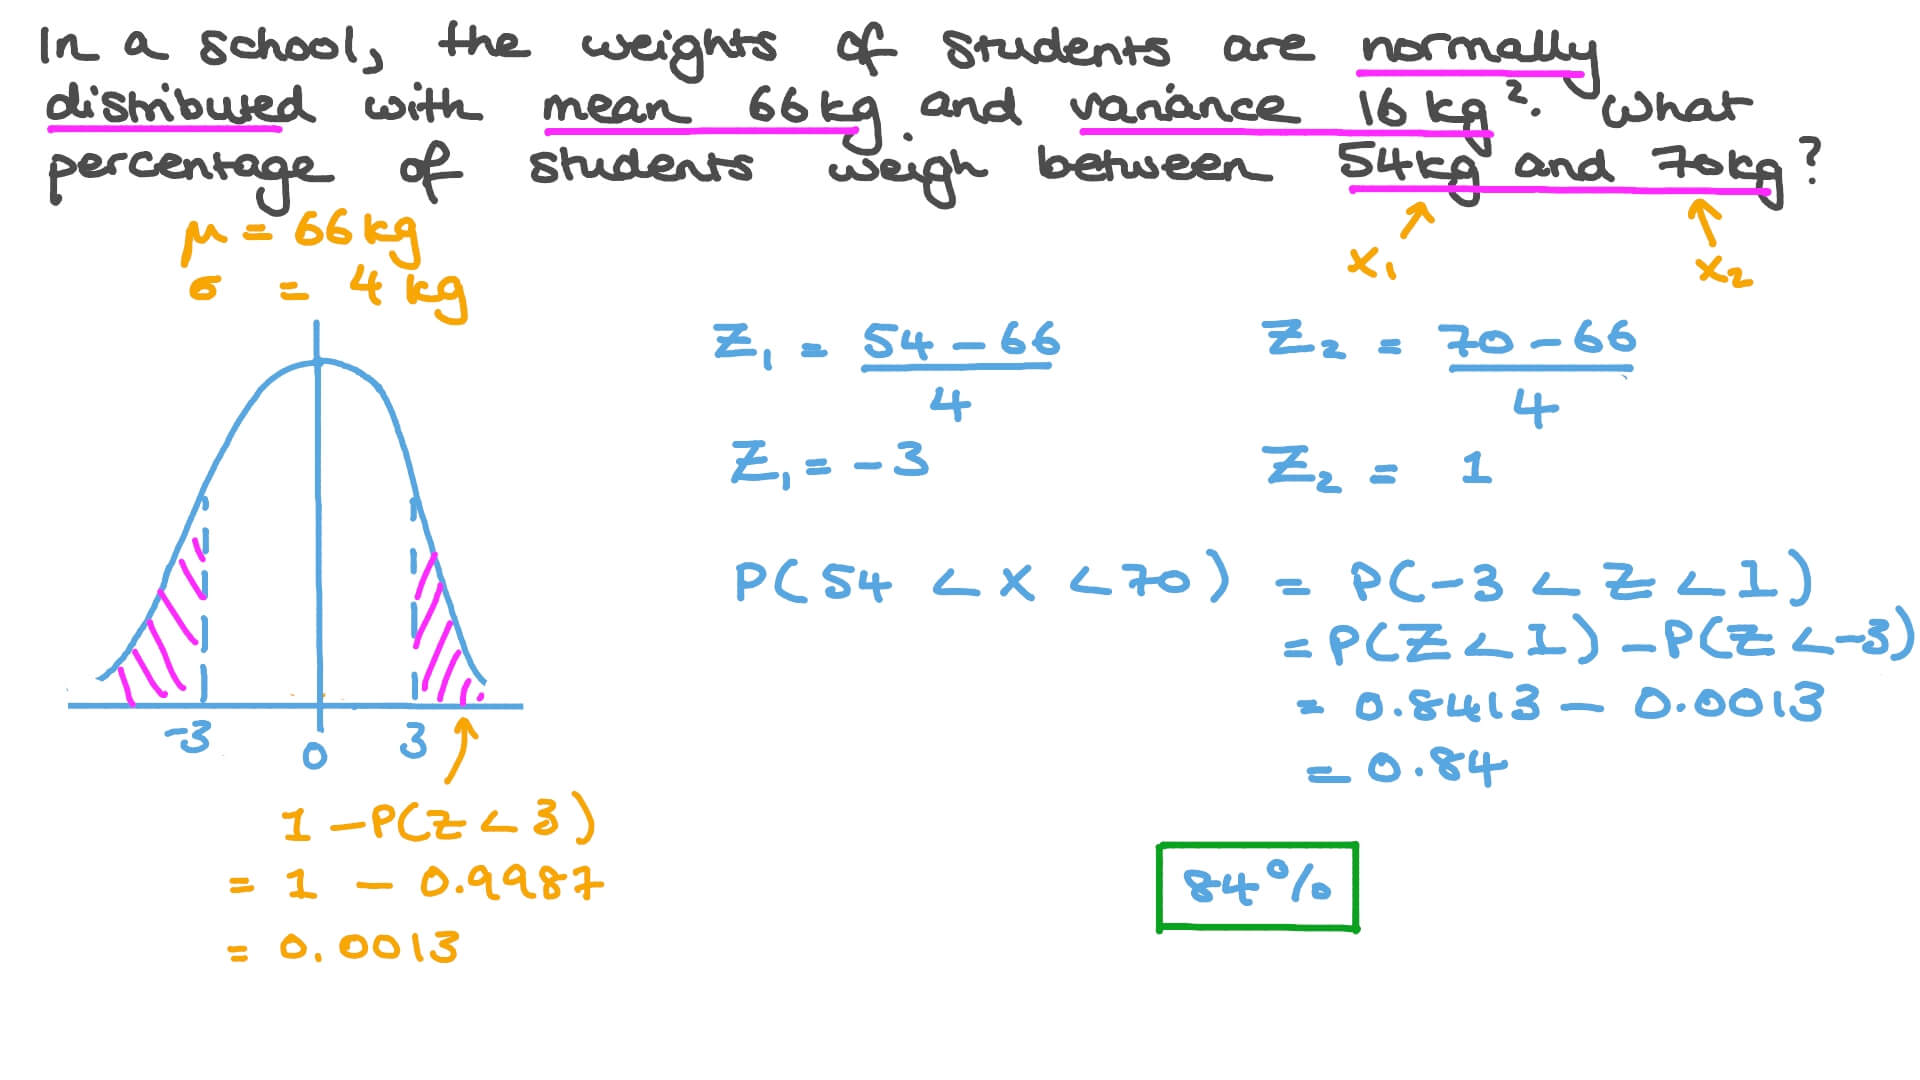 In a school, the weights of students are normally
distributed with mean 66kg and variance 16 kg². What
percentage of students weigh between 54kg and 70kg?
μ = 66kg
σ = 4kg
x₁
x₂
Z₁ = 54 - 66
4
Z₁ = -3
Z₂ = 70 - 66
4
Z₂ = 1
P(54 < X < 70) = P(-3 < Z < 1)
= P(Z < 1) - P(Z < -3)
= 0.8413 - 0.0013
= 0.84
84%
-3
0
3
1 - P(Z < 3)
= 1 - 0.9987
= 0.0013